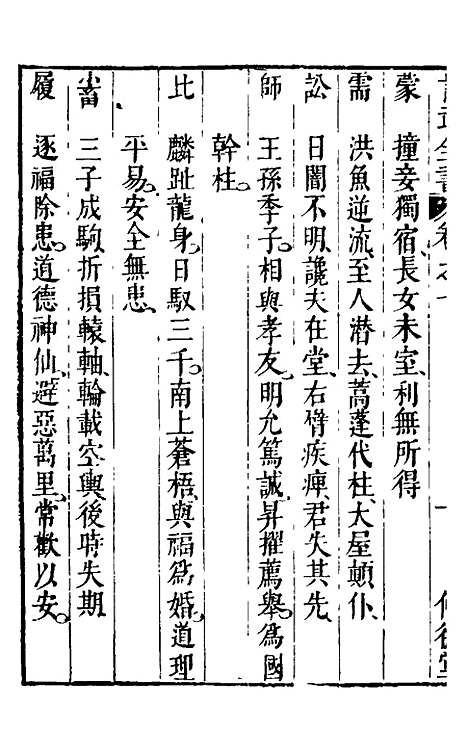 蒙　撞妾獨宿、長女未室、利無所得
需　洪魚逆流、至人潜去、蒿蓬代柱、大屋頓仆、
訟　日闇不明、讒夫在堂、右臂疾痺、君失其先、
師　王孫季子。相與孝友。明允篤誠。昇擢薦舉。爲國
幹柱。
比　麟趾龍身。日馭三千。南上蒼梧、與福爲婚。道理
平易。安全無患。
小畜　三子成駒、折損轅軸、輪載空輿、後時失期
履　逐福除患。道德神仙。避惡萬里。常歡以安。